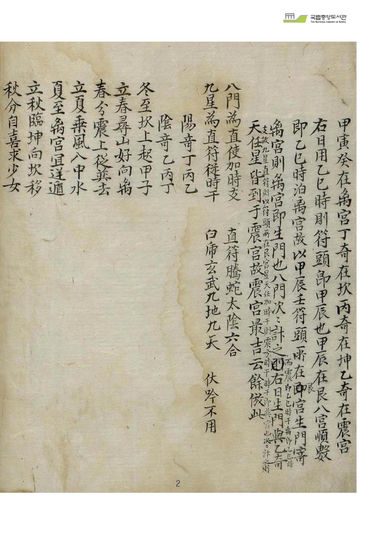 국립중앙도서관
甲寅癸在离宮丁奇在坎丙奇在坤乙奇在震宮
右日用乙巳時則符頭卽甲辰也甲辰在艮八宮順數
卽乙巳時泊离宮故以甲辰壬符頭所在卽宮生門寄
离宮則离宮卽生門也八門次次計之則右日生門與乙奇
天任星皆到于震宮故震宮最吉云餘倣此
八門為直使加時支 直符騰蛇太陰六合
九星為直符從時干 白虎玄武九地九天 伏吟不用
陽奇丁丙乙
陰奇乙丙丁
冬至坎上起甲子
立春尋山好向离
春分震上從巽去
立夏乘風八中水
夏至离宮宜逆適
立秋臨坤向坎移
秋分自喜求少女
2